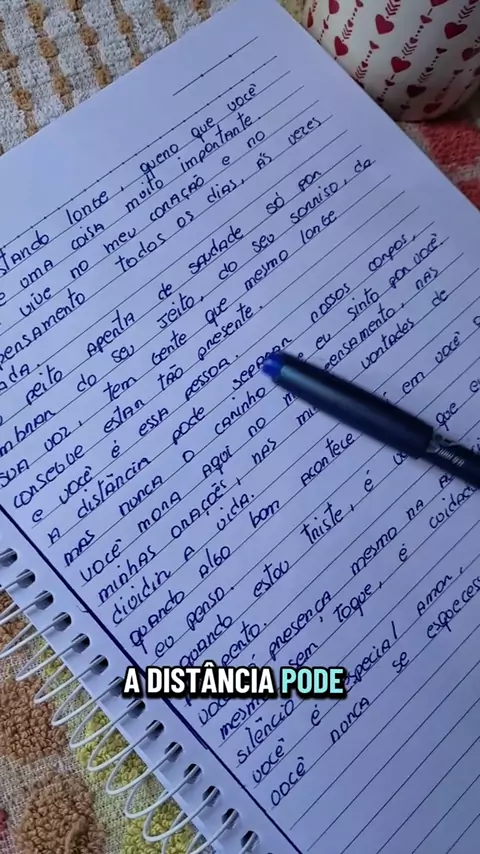 longe, quero que você
uma coisa muito importante.
vive no meu coração e no
pensamento todos os dias, às vezes
peito aperta de saudade só por
do seu jeito, do seu sorriso, da
sua voz, tem gente que mesmo longe
consegue estar tão presente.
e você é essa pessoa.
A distância pode separar nossos corpos,
mas nunca o carinho eu sinto por você.
você mora aqui no pensamento, nas
minhas orações, nas vontades de
dividir a vida.
quando algo bom acontece é em você
eu penso.
quando estou triste, é que eu
presença mesmo na
mesmo sem toque, é
silêncio
você é especial amor,
você nunca se esqueces
A DISTÂNCIA PODE